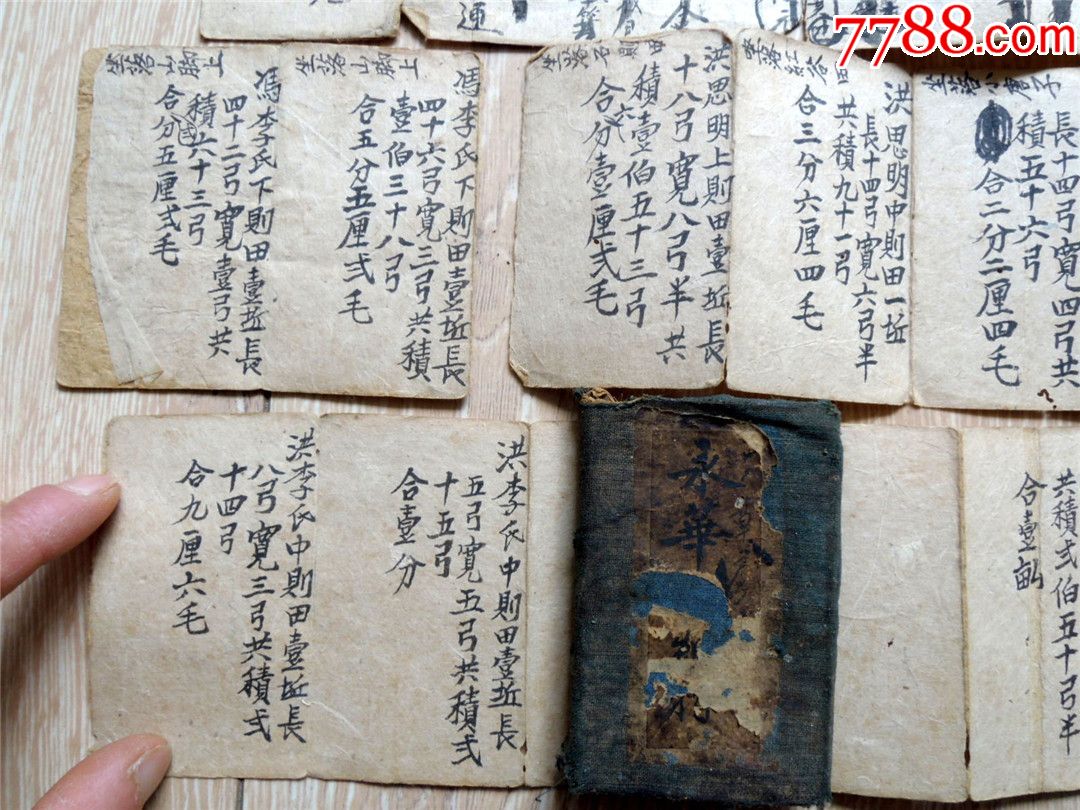 7788.com
坐落山腳上
馮李氏下則田壹坵長
四十六弓寬三弓共積
壹伯三十八弓
合五分五厘弍毛
坐落山腳上
馮李氏下則田壹坵長
四十二弓寬壹弓共
積六十三弓
合分五厘弍毛
洪思明上則田壹坵長
十八弓寬八弓半共
積壹伯五十三弓
合六分壹厘弍毛
洪思明中則田一坵
長十四弓寬六弓半
共積九十一弓
合三分六厘四毛
長十四弓寬四弓共
積五十六弓
合二分二厘四毛
洪李氏中則田壹坵長
五弓寬五弓共積弍
十五弓
合壹分
洪李氏中則田壹坵長
八弓寬三弓共積弍
十四弓
合九厘六毛
永華
共積弍伯五十弓半
合壹畝